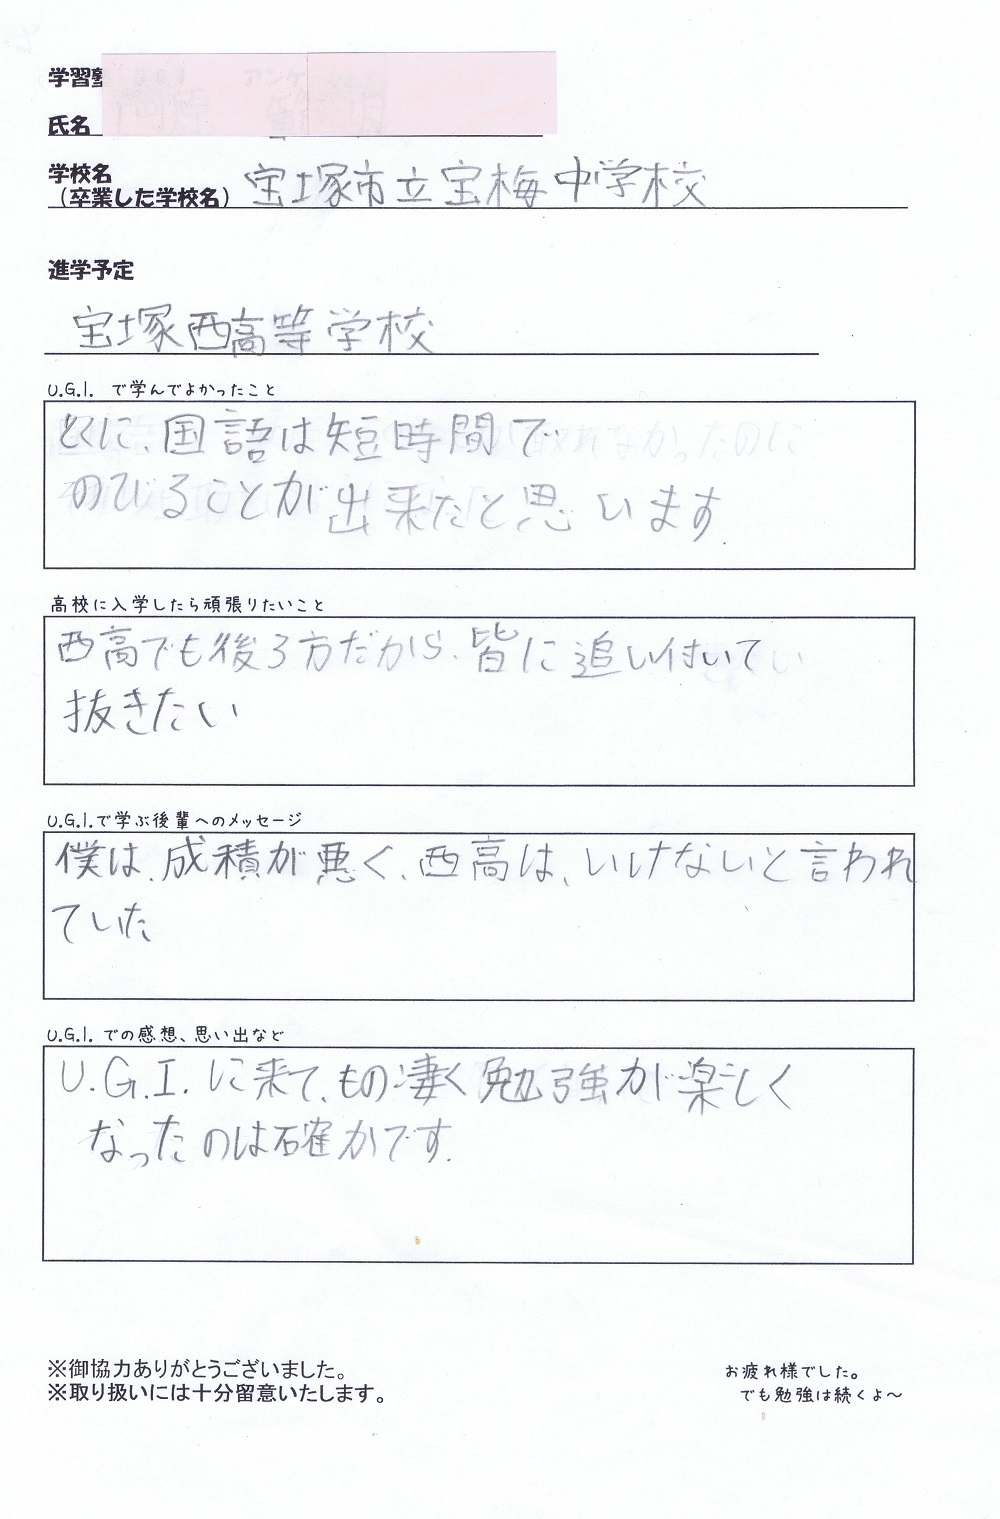 学習塾
氏名
学校名
（卒業した学校名） 宝塚市立宝梅中学校
進学予定
宝塚西高等学校
U.G.I. で学んでよかったこと
とくに、国語は短時間で
のびることが出来たと思います.
高校に入学したら頑張りたいこと
西高でも後ろ方だから、皆に追い付いて
抜きたい
U.G.I.で学ぶ後輩へのメッセージ
僕は、成積が悪く、西高は、いけないと言われ
ていた
U.G.I. での感想、思い出など
U.G.I. に来て、もの凄く勉強が楽しく
なったのは確かです.
※御協力ありがとうございました。
※取り扱いには十分留意いたします。
お疲れ様でした。
でも勉強は続くよ～